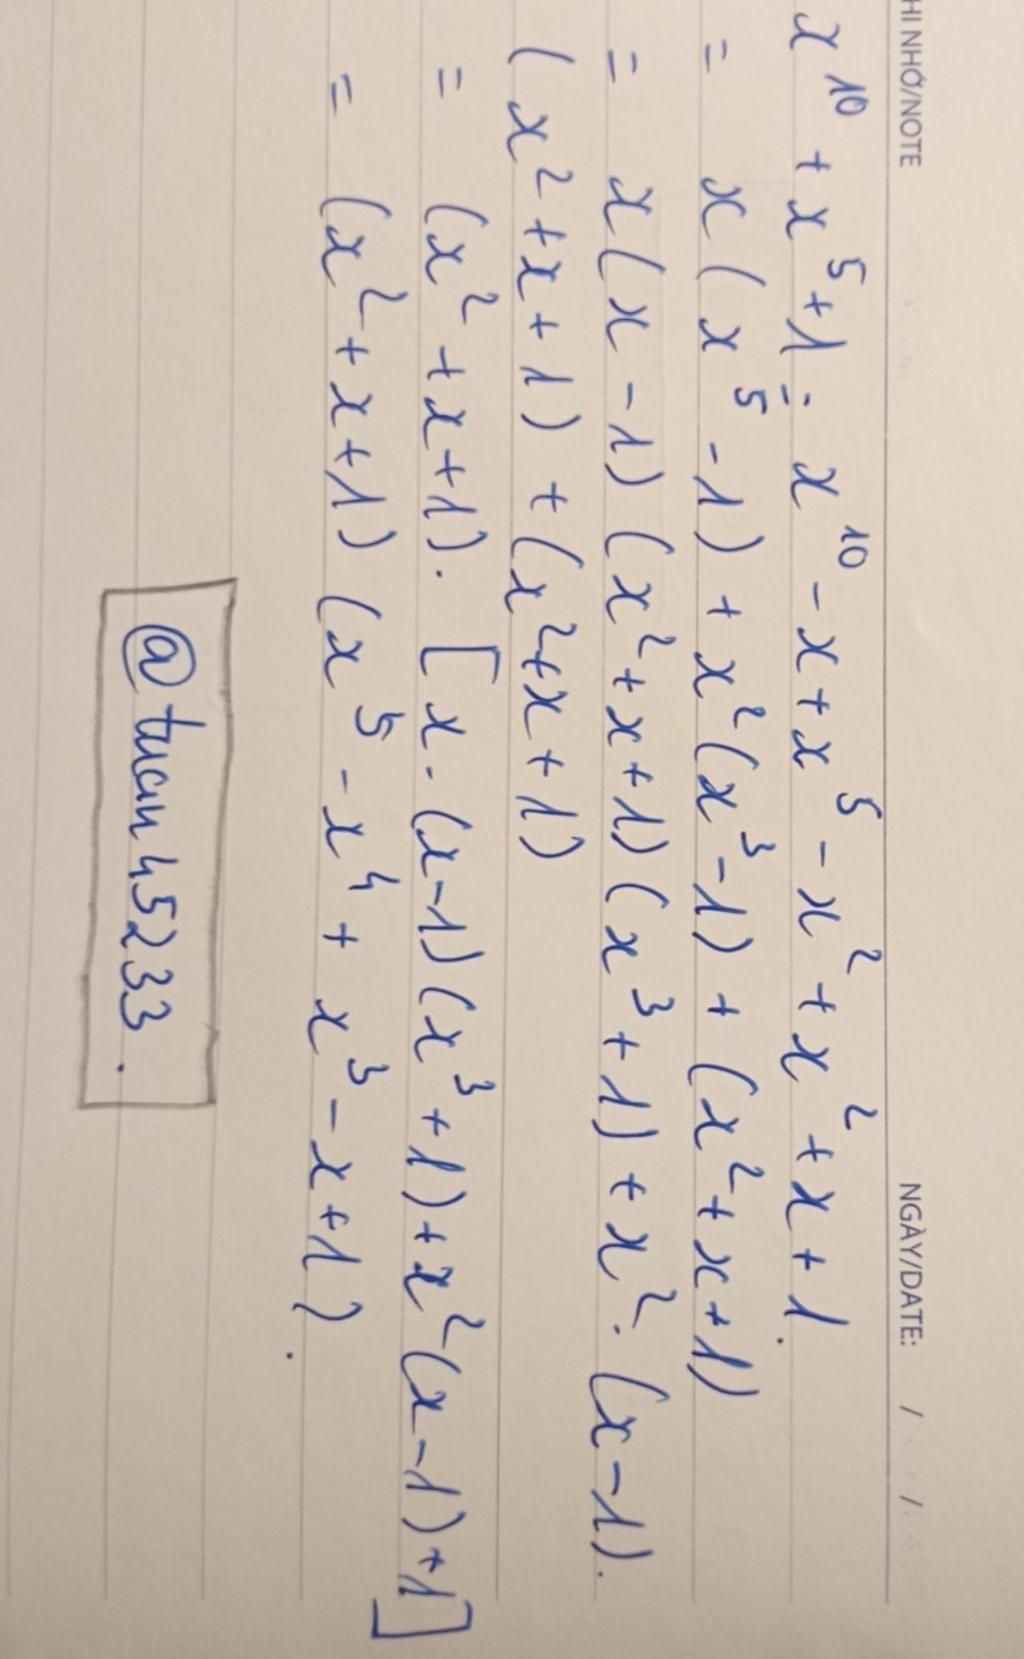 HI NHỚ/NOTE NGÀY/DATE: / /
x¹⁰ + x⁵ + 1 = x¹⁰ - x + x⁵ - x² + x² + x + 1.
= x ( x⁵ - 1) + x² (x³ - 1) + (x² + x + 1)
= x (x - 1) (x² + x + 1) (x³ + 1) + x² . (x - 1).
(x² + x + 1) + (x² + x + 1)
= (x² + x + 1). [ x . (x - 1) (x³ + 1) + x² (x - 1) + 1]
= (x² + x + 1) (x⁵ - x⁴ + x³ - x + 1).
@tuan45233.